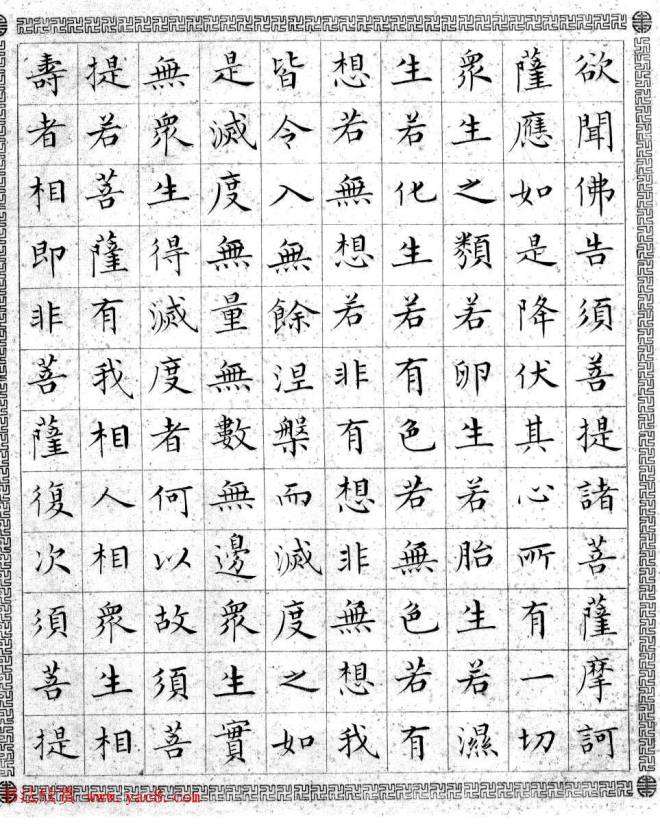 欲聞佛告須菩提諸菩薩摩訶
薩應如是降伏其心所有一切
眾生之類若卵生若胎生若濕
生若化生若有色若無色若有
想若無想若非有想非無想我
皆令入無餘涅槃而滅度之如
是滅度無量無數無邊眾生實
無眾生得滅度者何以故須菩
提若菩薩有我相人相眾生相
壽者相即非菩薩復次須菩提
www.yac8.com